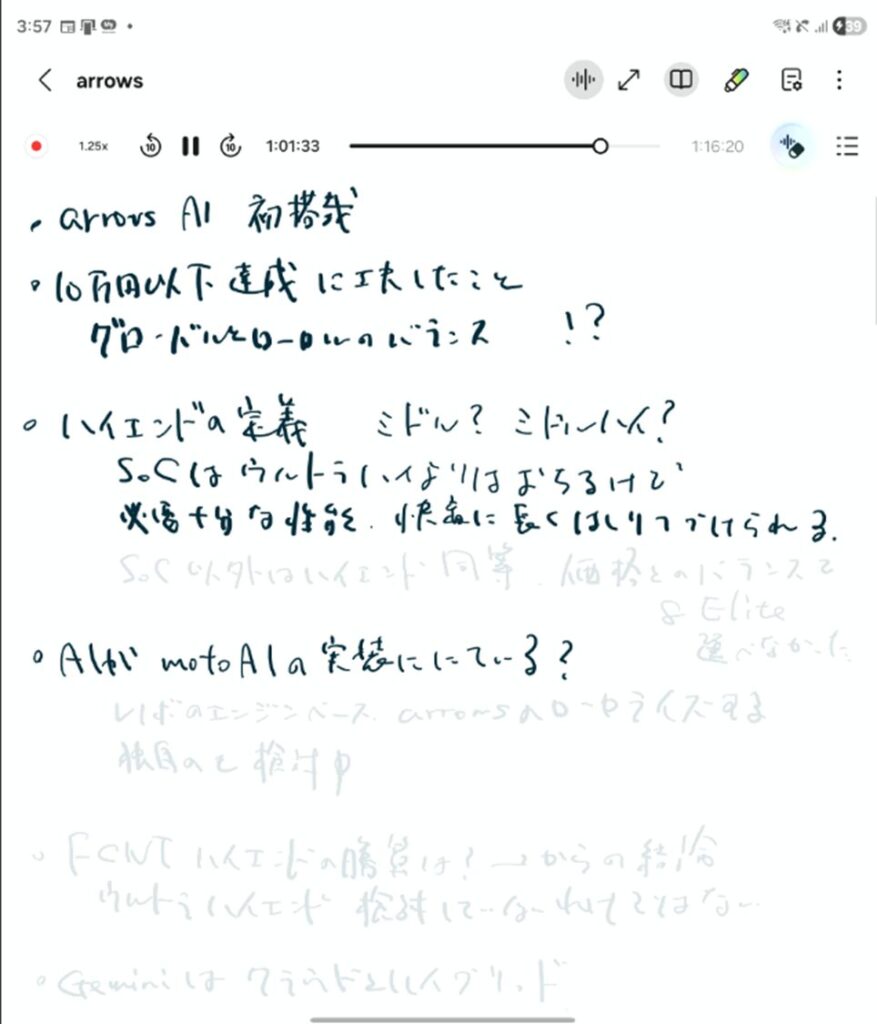 3:57 39
arrows
1.25x 10 10 1:01:33 1:16:20
・arrows AI 初搭載
・10万円以下達成に工夫したこと
グローバルとローカルのバランス !?
・ハイエンドの定義 ミドル? ミドルハイ?
SoCはウルトラハイよりはおちるけど
必要十分な性能、快適に長くはしりつづけられる.
SoC以外はハイエンド同等. 価格とのバランスで
8 Elite
選べなかった
・AIが motoAIの実装ににている?
レノボのエンジンベース. arrowsのローカライズする
独自のも検討中
・FCNT ハイエンドの勝負は? →からの結論
ウルトラハイエンド 検討していないわけではない
・Geminiは クラウドとハイブリッド